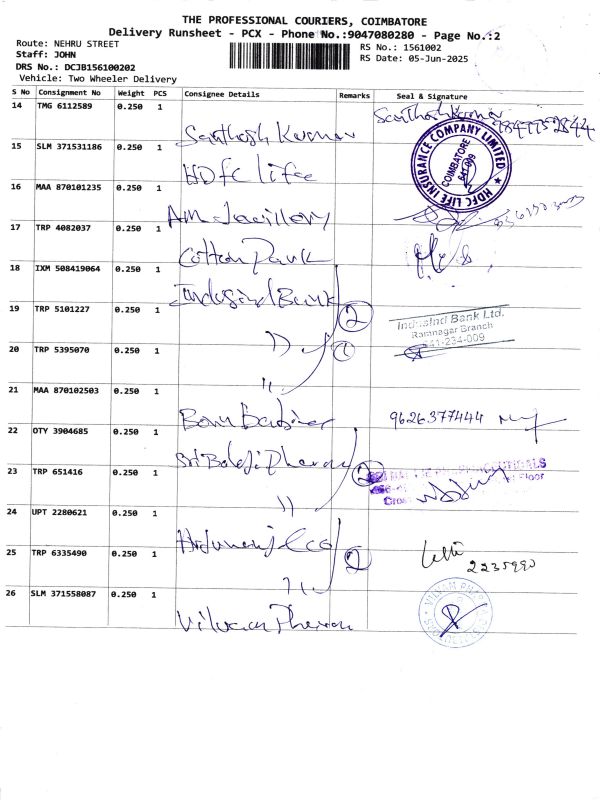 THE PROFESSIONAL COURIERS, COIMBATORE
Delivery Runsheet - PCX - Phone No.:9047080280 - Page No.:2
Route: NEHRU STREET
Staff: JOHN
DRS No.: DCJB156100202
Vehicle: Two Wheeler Delivery
RS No.: 1561002
RS Date: 05-Jun-2025
S No Consignment No Weight PCS Consignee Details Remarks Seal & Signature
14 TMG 6112589 0.250 1 Santhosh Kumar Santhosh Kumar
15 SLM 371531186 0.250 1 HDFC Life HDFC LIFE INSURANCE COMPANY LIMITED COIMBATORE 641 009
16 MAA 870101235 0.250 1 AM
17 TRP 4082037 0.250 1 Cotton Park
18 IXM 508419064 0.250 1 Indusind Bank
19 TRP 5101227 0.250 1 〃 2 IndusInd Bank Ltd.
Ramnagar Branch
641-234-009
20 TRP 5395070 0.250 1 〃 1
21 MAA 870102503 0.250 1 9626377444
22 OTY 3904685 0.250 1 Sri Balaji Pharma
23 TRP 651416 0.250 1 〃 2 Floor
24 UPT 2280621 0.250 1
25 TRP 6335490 0.250 1 〃 2 2235990
26 SLM 371558087 0.250 1 Vilvam Pharma VILVAM